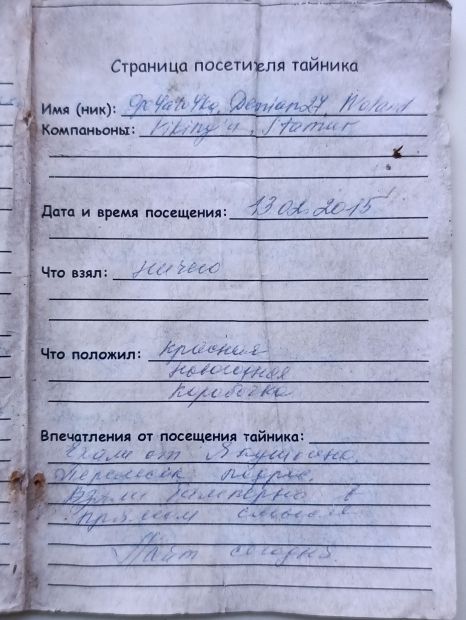 Страница посетителя тайника
Имя (ник): Demian27,
Компаньоны: Viking'и, Stamur
Дата и время посещения: 13.02.2015
Что взял: ничего
Что положил: красная
новогодняя
коробочка
Впечатления от посещения тайника:
Ехали от Якушкино.
Перелесок подрос.
Взяли в
прямом смысле
сегодня.